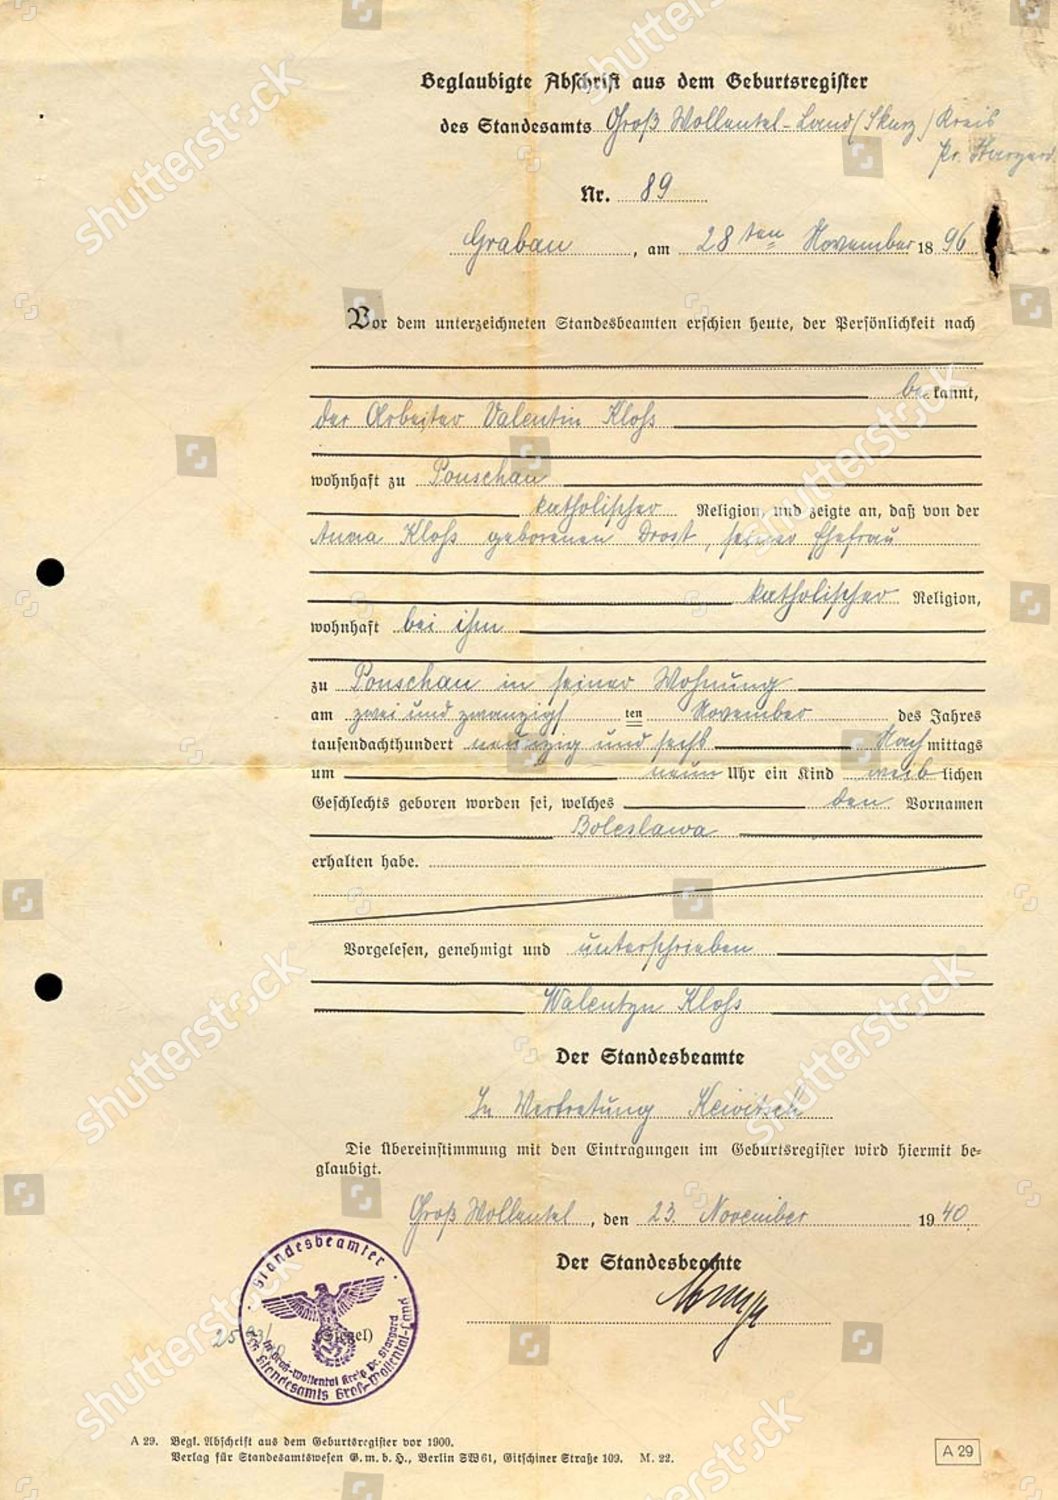 Beglaubigte Abschrift aus dem Geburtsregister
des Standesamts Groß Wollental-Land (Skurz) Kreis
Pr. Stargard
Nr. 89
Grabau, am 28ten November 1896
Vor dem unterzeichneten Standesbeamten erschien heute, der Persönlichkeit nach
bekannt,
der Arbeiter Valentin Kloß
wohnhaft zu Ponschau
katholischer Religion, und zeigte an, daß von der
Anna Kloß geborenen Drost, seiner Ehefrau
katholischer Religion,
wohnhaft bei ihm
zu Ponschau in seiner Wohnung
am zwei und zwanzigsten November des Jahres
tausendachthundert neunzig und sechs Nachmittags
um neun Uhr ein Kind weiblichen
Geschlechts geboren worden sei, welches den Vornamen
Boleslawa
erhalten habe.
Vorgelesen, genehmigt und unterschrieben
Walentyn Kloß
Der Standesbeamte
In Vertretung
Die Übereinstimmung mit den Eintragungen im Geburtsregister wird hiermit be-
glaubigt.
Groß Wollental, den 23. November 1940
Der Standesbeamte
Standesbeamter
(Siegel)
in Groß-Wollental Kreis Pr. Stargard
des Standesamts Groß-Wollental-Land
A 29. Begl. Abschrift aus dem Geburtsregister vor 1900.
Verlag für Standesamtswesen G. m. b. H., Berlin SW 61, Gitschiner Straße 109. M. 22.
A 29
shutterstock
shutterstock
shutterstock
shutterstock
shutterstock
shutterstock
shutterstock